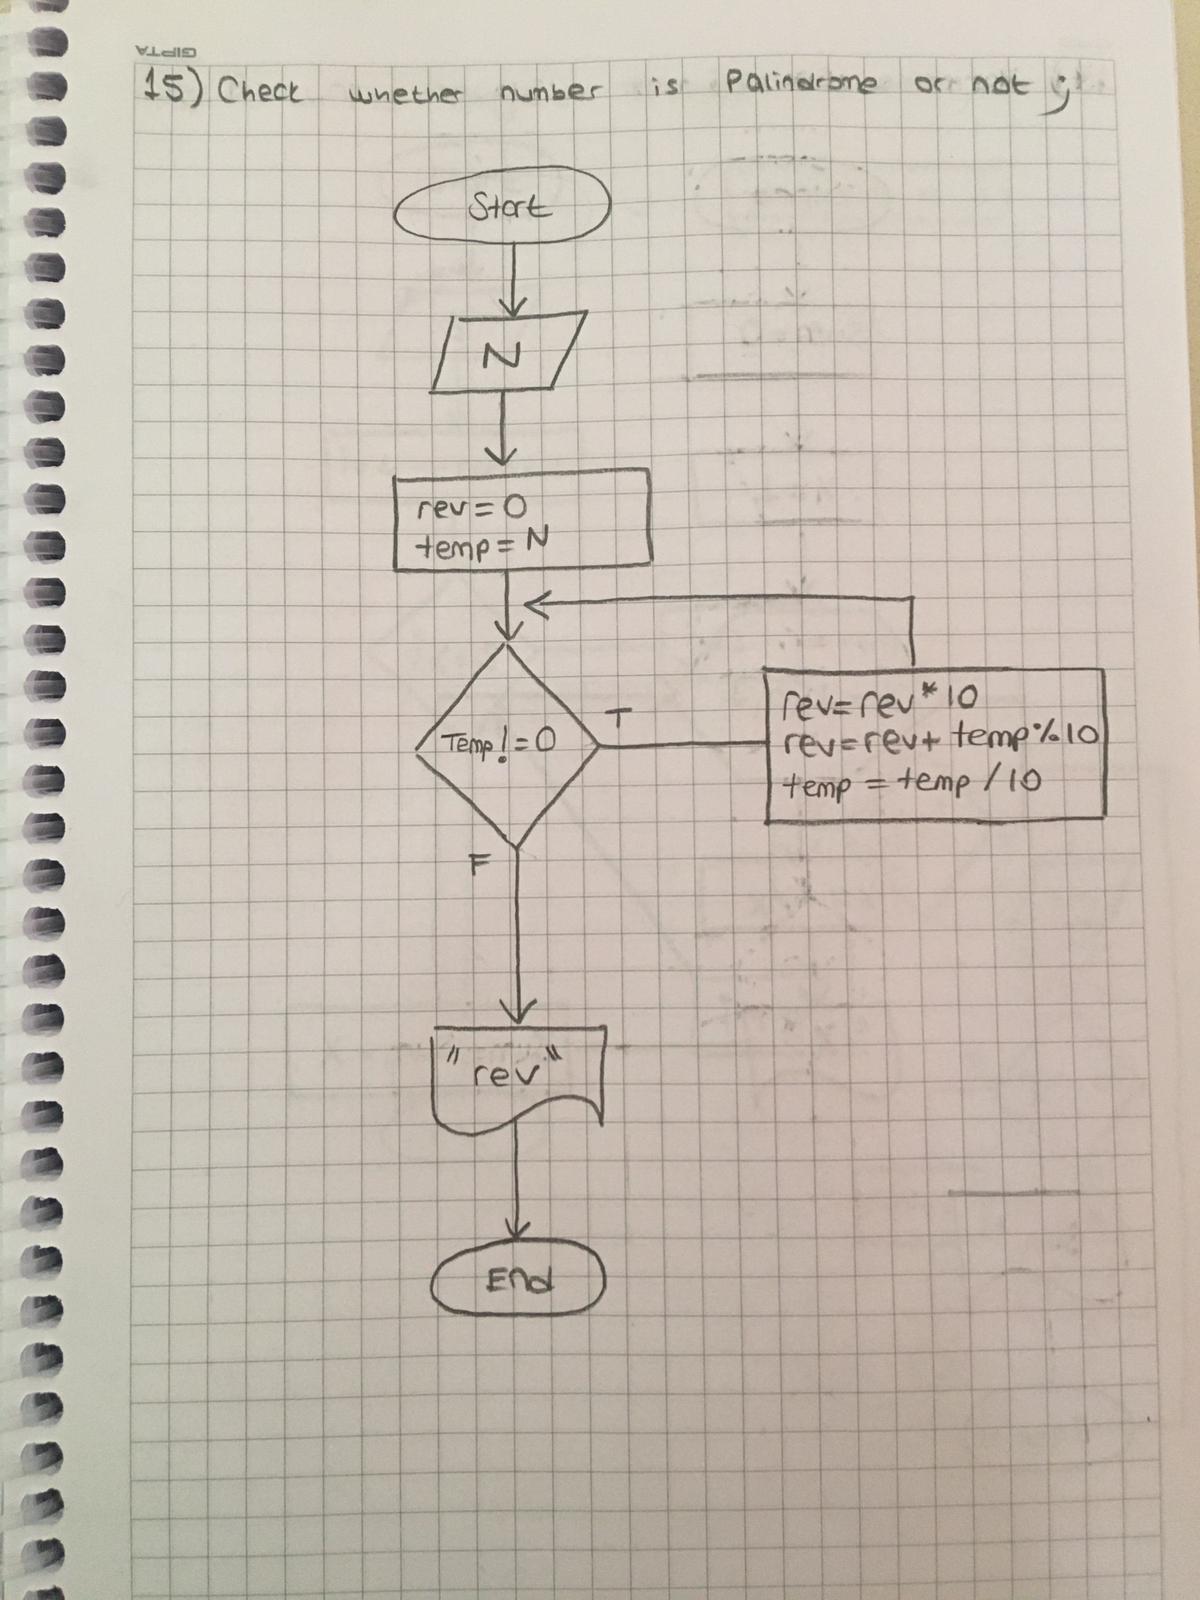 GIPTA
15) Check whether number is Palindrome or not ;
Start
N
rev = 0
temp = N
Temp! = 0
T
rev = rev * 10
rev = rev + temp % 10
temp = temp / 10
F
"rev"
End